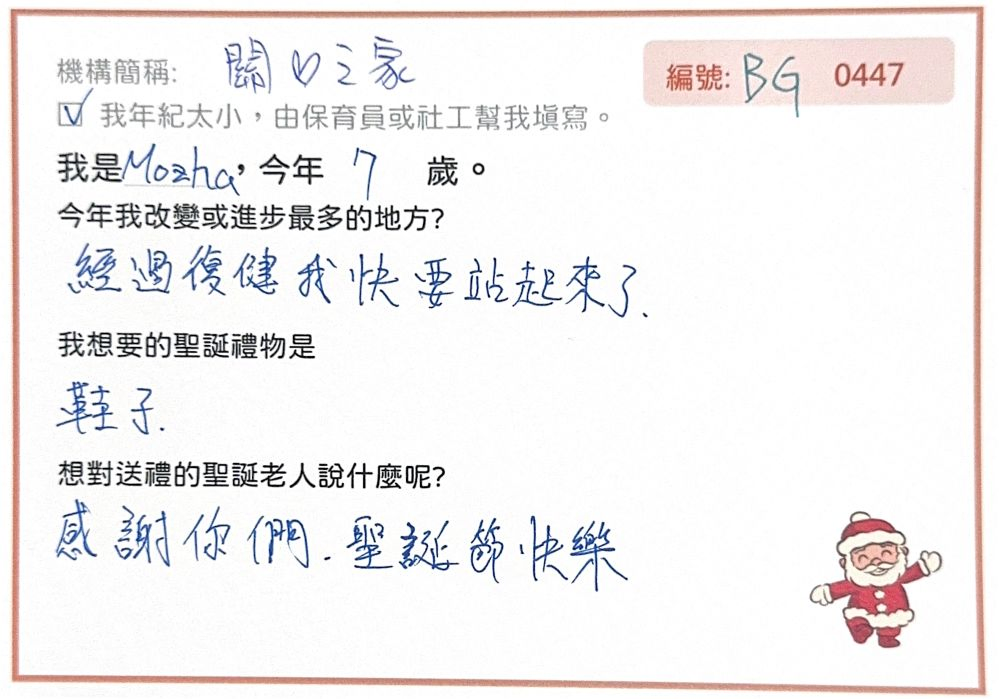 機構簡稱: 關心之家
編號: BG 0447
☑ 我年紀太小，由保育員或社工幫我填寫。
我是Mozha，今年 7 歲。
今年我改變或進步最多的地方?
經過復健我快要站起來了.
我想要的聖誕禮物是
鞋子.
想對送禮的聖誕老人說什麼呢?
感謝你們.聖誕節快樂